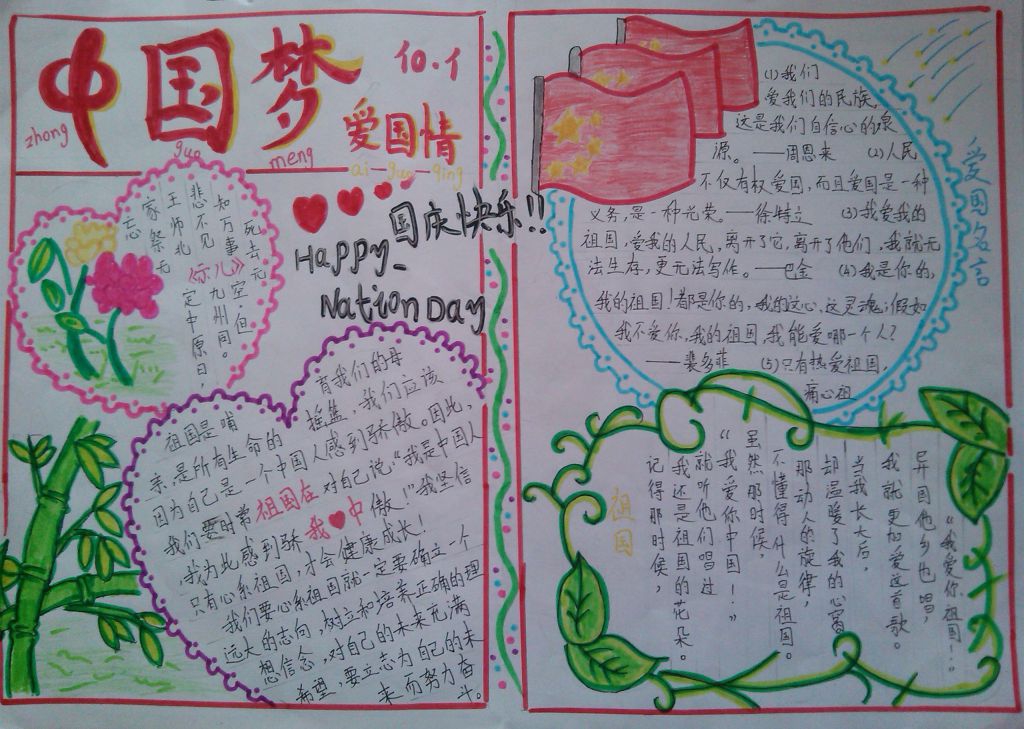 中国梦
zhong guo meng
10.1
爱国情
ai guo qing
国庆快乐!!
Happy
Nation Day
《示儿》
死去元
知万事空,但
悲不见九州同。
王师北定中原日,
家祭无
忘
祖国是哺育我们的母
亲,是所有生命的摇篮,我们应该
因为自己是一个中国人感到骄傲。因此,
我们要时常对自己说“我是中国人
,我为此感到骄傲!”我坚信
祖国在
我 中
只有心系祖国,才会健康成长!
我们要心系祖国就一定要确立一个
远大的志向,树立和培养正确的理
想信念,对自己的未来充满
希望,要立志为自己的未
来而努力奋
斗。
爱国名言
(1)我们
爱我们的民族,
这是我们自信心的泉
源。——周恩来 (2)人民
不仅有权爱国,而且爱国是一种
义务,是一种光荣。——徐特立 (3)我爱我的
祖国,爱我的人民,离开了它,离开了他们,我就无
法生存,更无法写作。——巴金 (4)我是你的,
我的祖国!都是你的,我的这心,这灵魂;假如
我不爱你,我的祖国,我能爱哪一个人?
——裴多菲 (5)只有热爱祖国,
痛心祖
祖国
记得那时候,
我还是祖国的花朵。
就听他们唱过
“我爱你中国!”
虽然那时候,
不懂得什么是祖国。
那动人的旋律,
却温暖了我的心窝
当我长大后,
我就更加爱这首歌。
异国他乡也唱,
“我爱你祖国!”